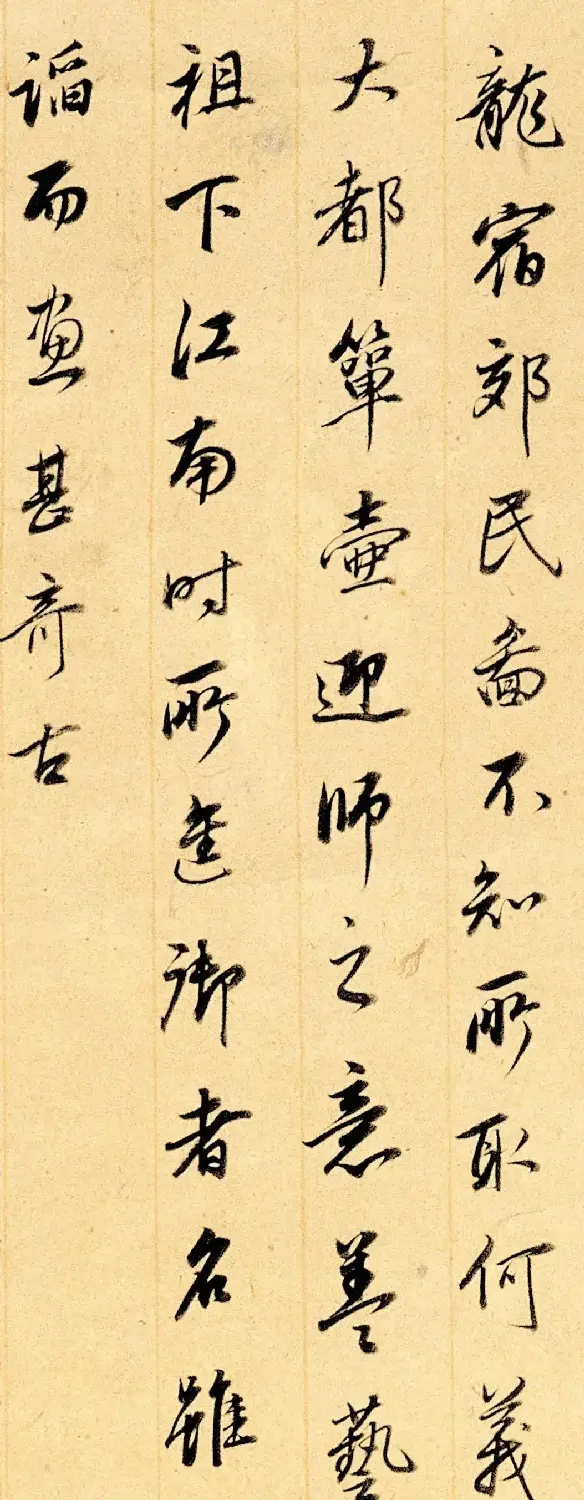 龍宿郊民圖不知所取何義
大都簞壺迎師之意蓋藝
祖下江南时所進御者名雖
諂而畫甚奇古